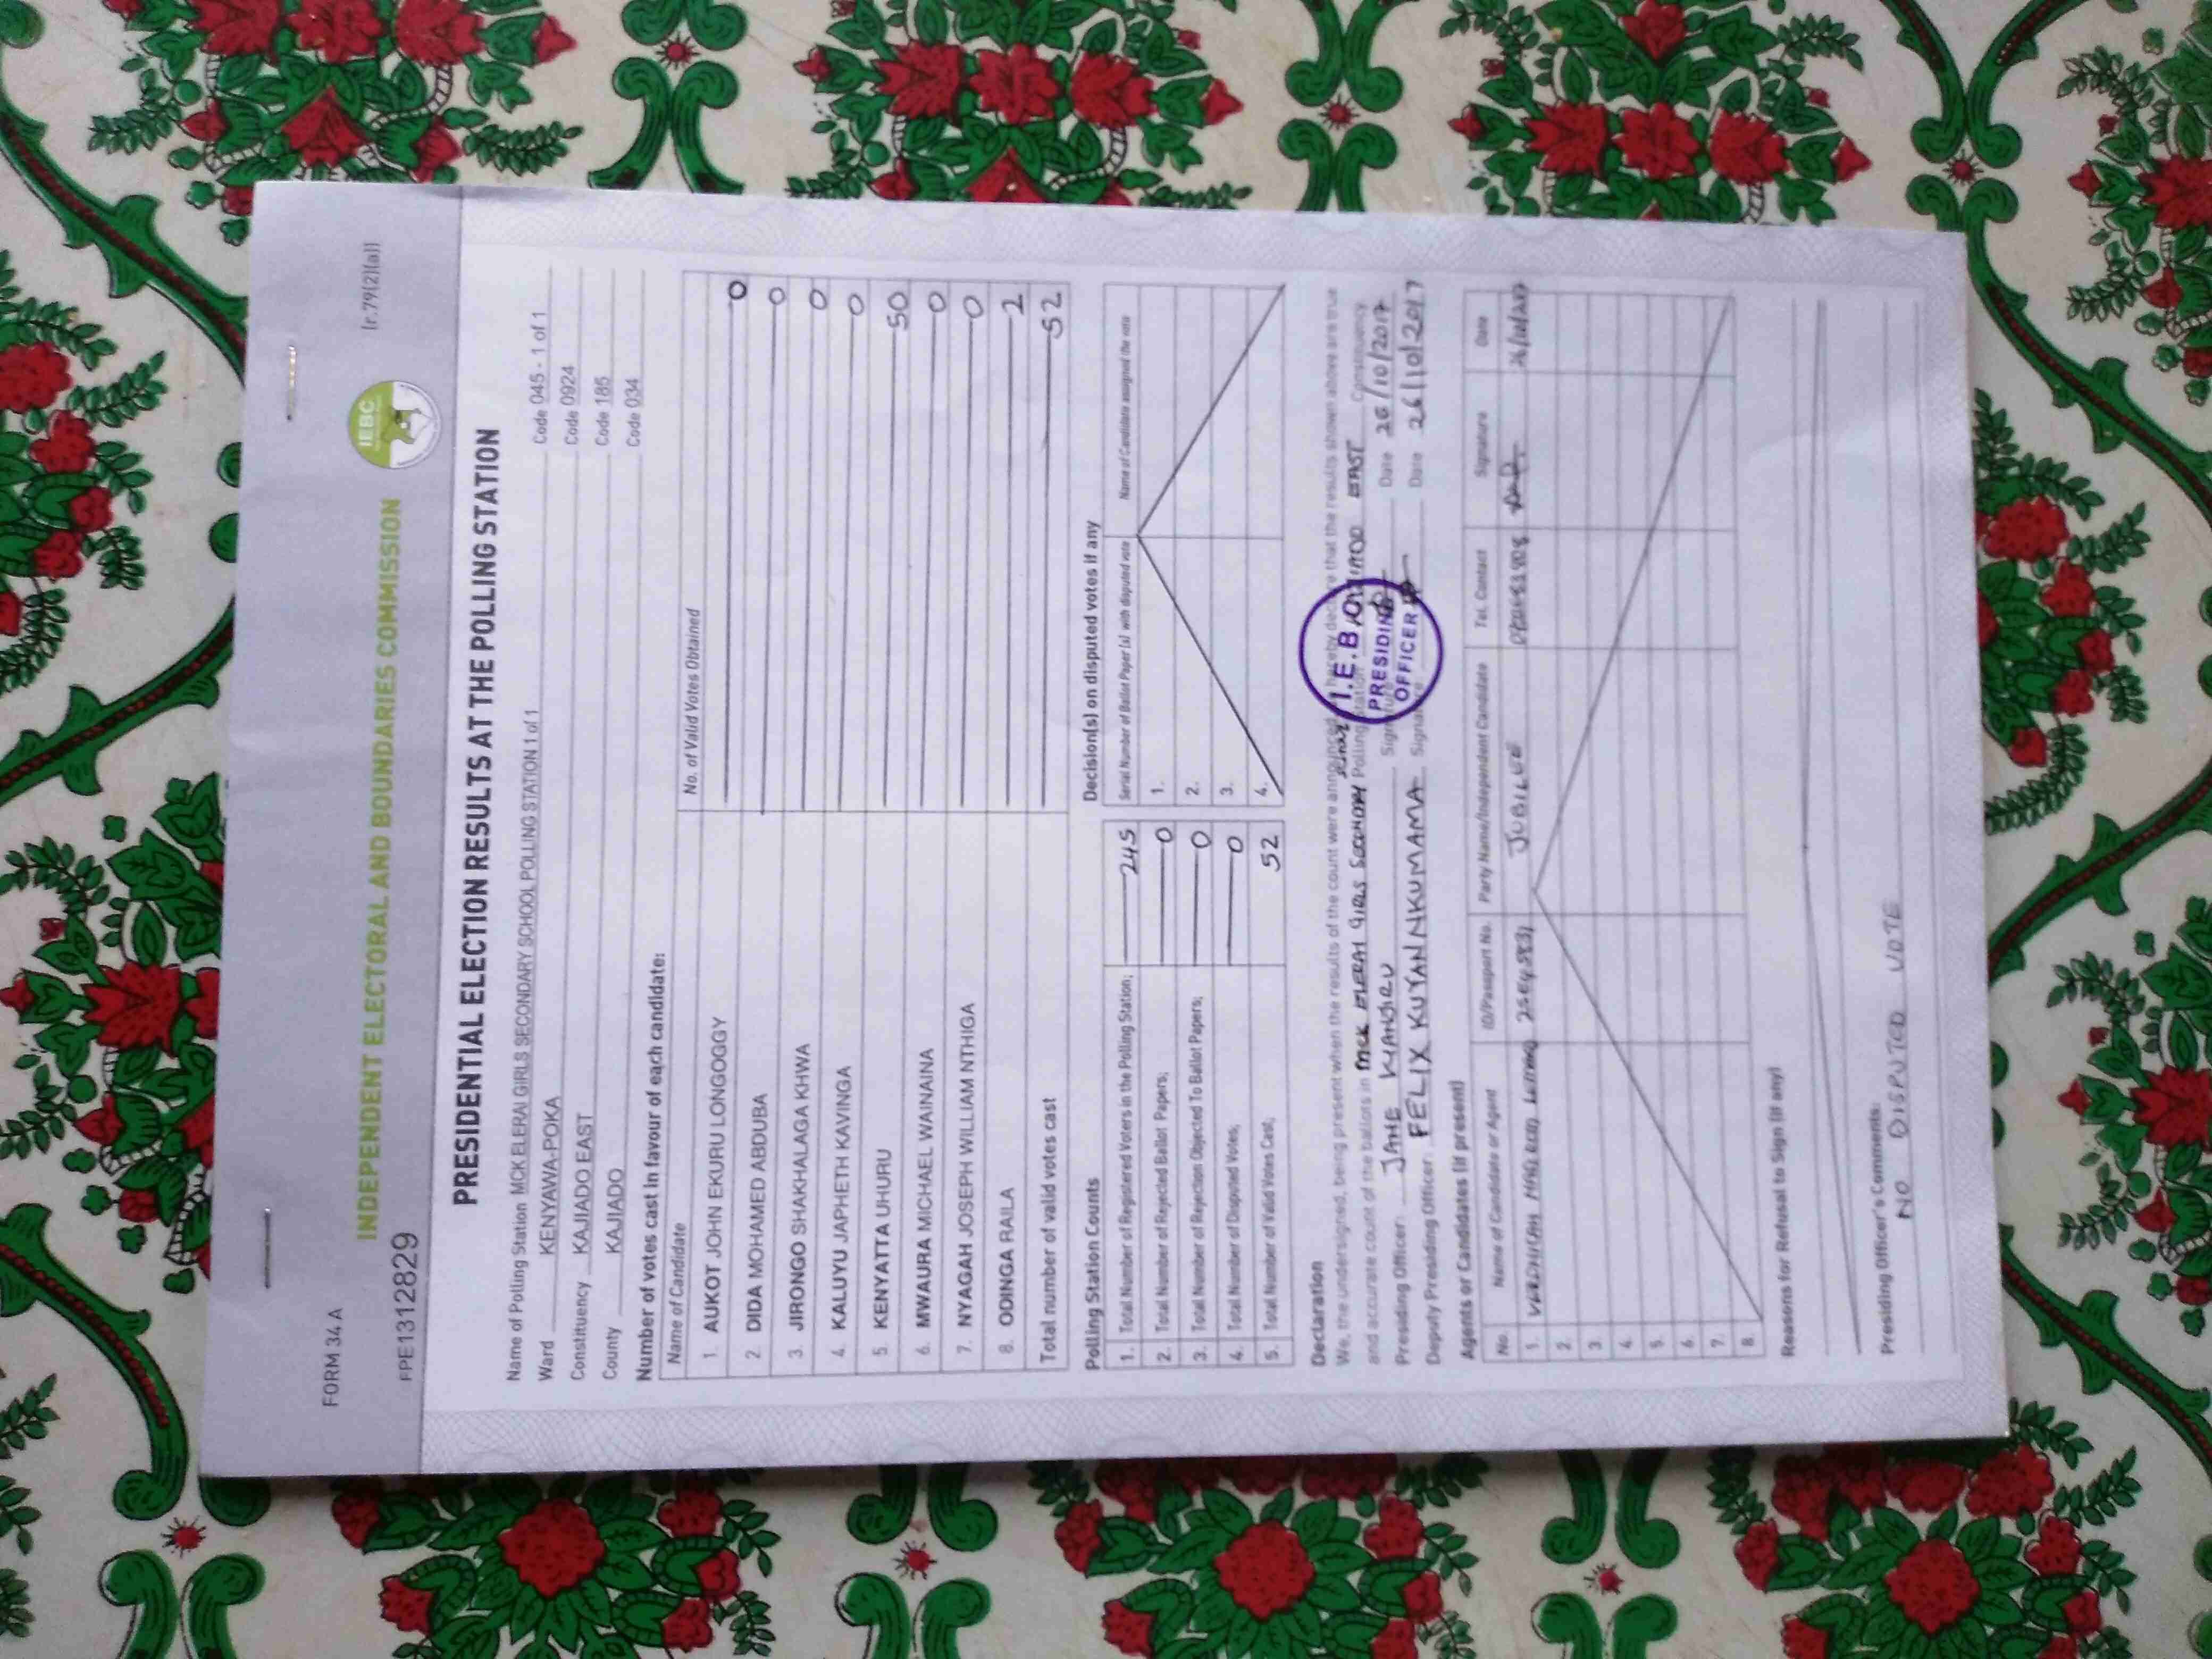 FORM 34 A
[r.79(2)(a)]
IEBC
INDEPENDENT ELECTORAL AND BOUNDARIES COMMISSION
FPE1312829
PRESIDENTIAL ELECTION RESULTS AT THE POLLING STATION
Name of Polling Station MCK ELERAI GIRLS SECONDARY SCHOOL POLLING STATION 1 of 1 Code 045 - 1 of 1
Ward KENYAWA-POKA Code 0924
Constituency KAJIADO EAST Code 185
County KAJIADO Code 034
Number of votes cast in favour of each candidate:
Name of Candidate No. of Valid Votes Obtained
1. AUKOT JOHN EKURU LONGOGGY 0
2 DIDA MOHAMED ABDUBA 0
3. JIRONGO SHAKHALAGA KHWA 0
4. KALUYU JAPHETH KAVINGA 0
5. KENYATTA UHURU 50
6. MWAURA MICHAEL WAINAINA 0
7. NYAGAH JOSEPH WILLIAM NTHIGA 0
8. ODINGA RAILA 2
Total number of valid votes cast 52
Polling Station Counts
1. Total Number of Registered Voters in the Polling Station; 245
2. Total Number of Rejected Ballot Papers; 0
3. Total Number of Rejection Objected To Ballot Papers; 0
4. Total Number of Disputed Votes; 0
5. Total Number of Valid Votes Cast; 52
Decision(s) on disputed votes if any
Serial Number of Ballot Paper (s) with disputed vote Name of Candidate assigned the vote
1.
2.
3.
4.
Declaration
We, the undersigned, being present when the results of the count were announced, hereby declare that the results shown above are true
and accurate count of the ballots in MCK ELERAI GIRLS SECONDARY Polling Station KAJIADO EAST Constituency
Presiding Officer: JANE WANJIRU Signature Date 26/10/2017
Deputy Presiding Officer: FELIX KUYAN NKUMAMA Signature Date 26/10/2017
I.E.B.C
PRESIDING
OFFICER
Agents or Candidates (if present)
No. Name of Candidate or Agent ID/Passport No. Party Name/Independent Candidate Tel. Contact Signature Date
1. JUBILEE 26/10/2017
2.
3.
4.
5.
6.
7.
8.
Reasons for Refusal to Sign (if any)
Presiding Officer's Comments:
NO DISPUTED VOTE